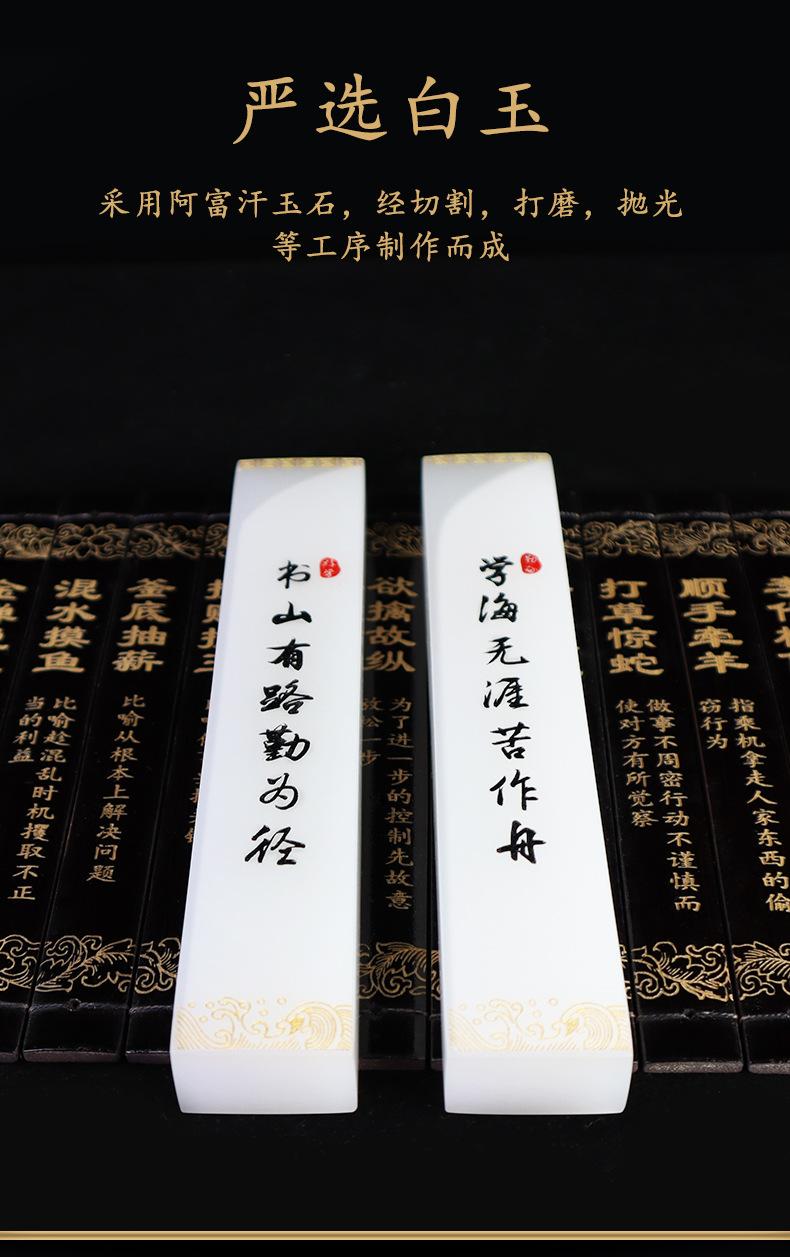 严选白玉
采用阿富汗玉石，经切割，打磨，抛光
等工序制作而成
书山有路勤为径
学海无涯苦作舟
混水摸鱼
比喻趁混乱时机攫取不正
当的利益
釜底抽薪
比喻从根本上解决问题
欲擒故纵
为了进一步的控制先故意
放松一步
打草惊蛇
做事不周密行动不谨慎而
使对方有所觉察
顺手牵羊
指乘机拿走人家东西的偷
窃行为